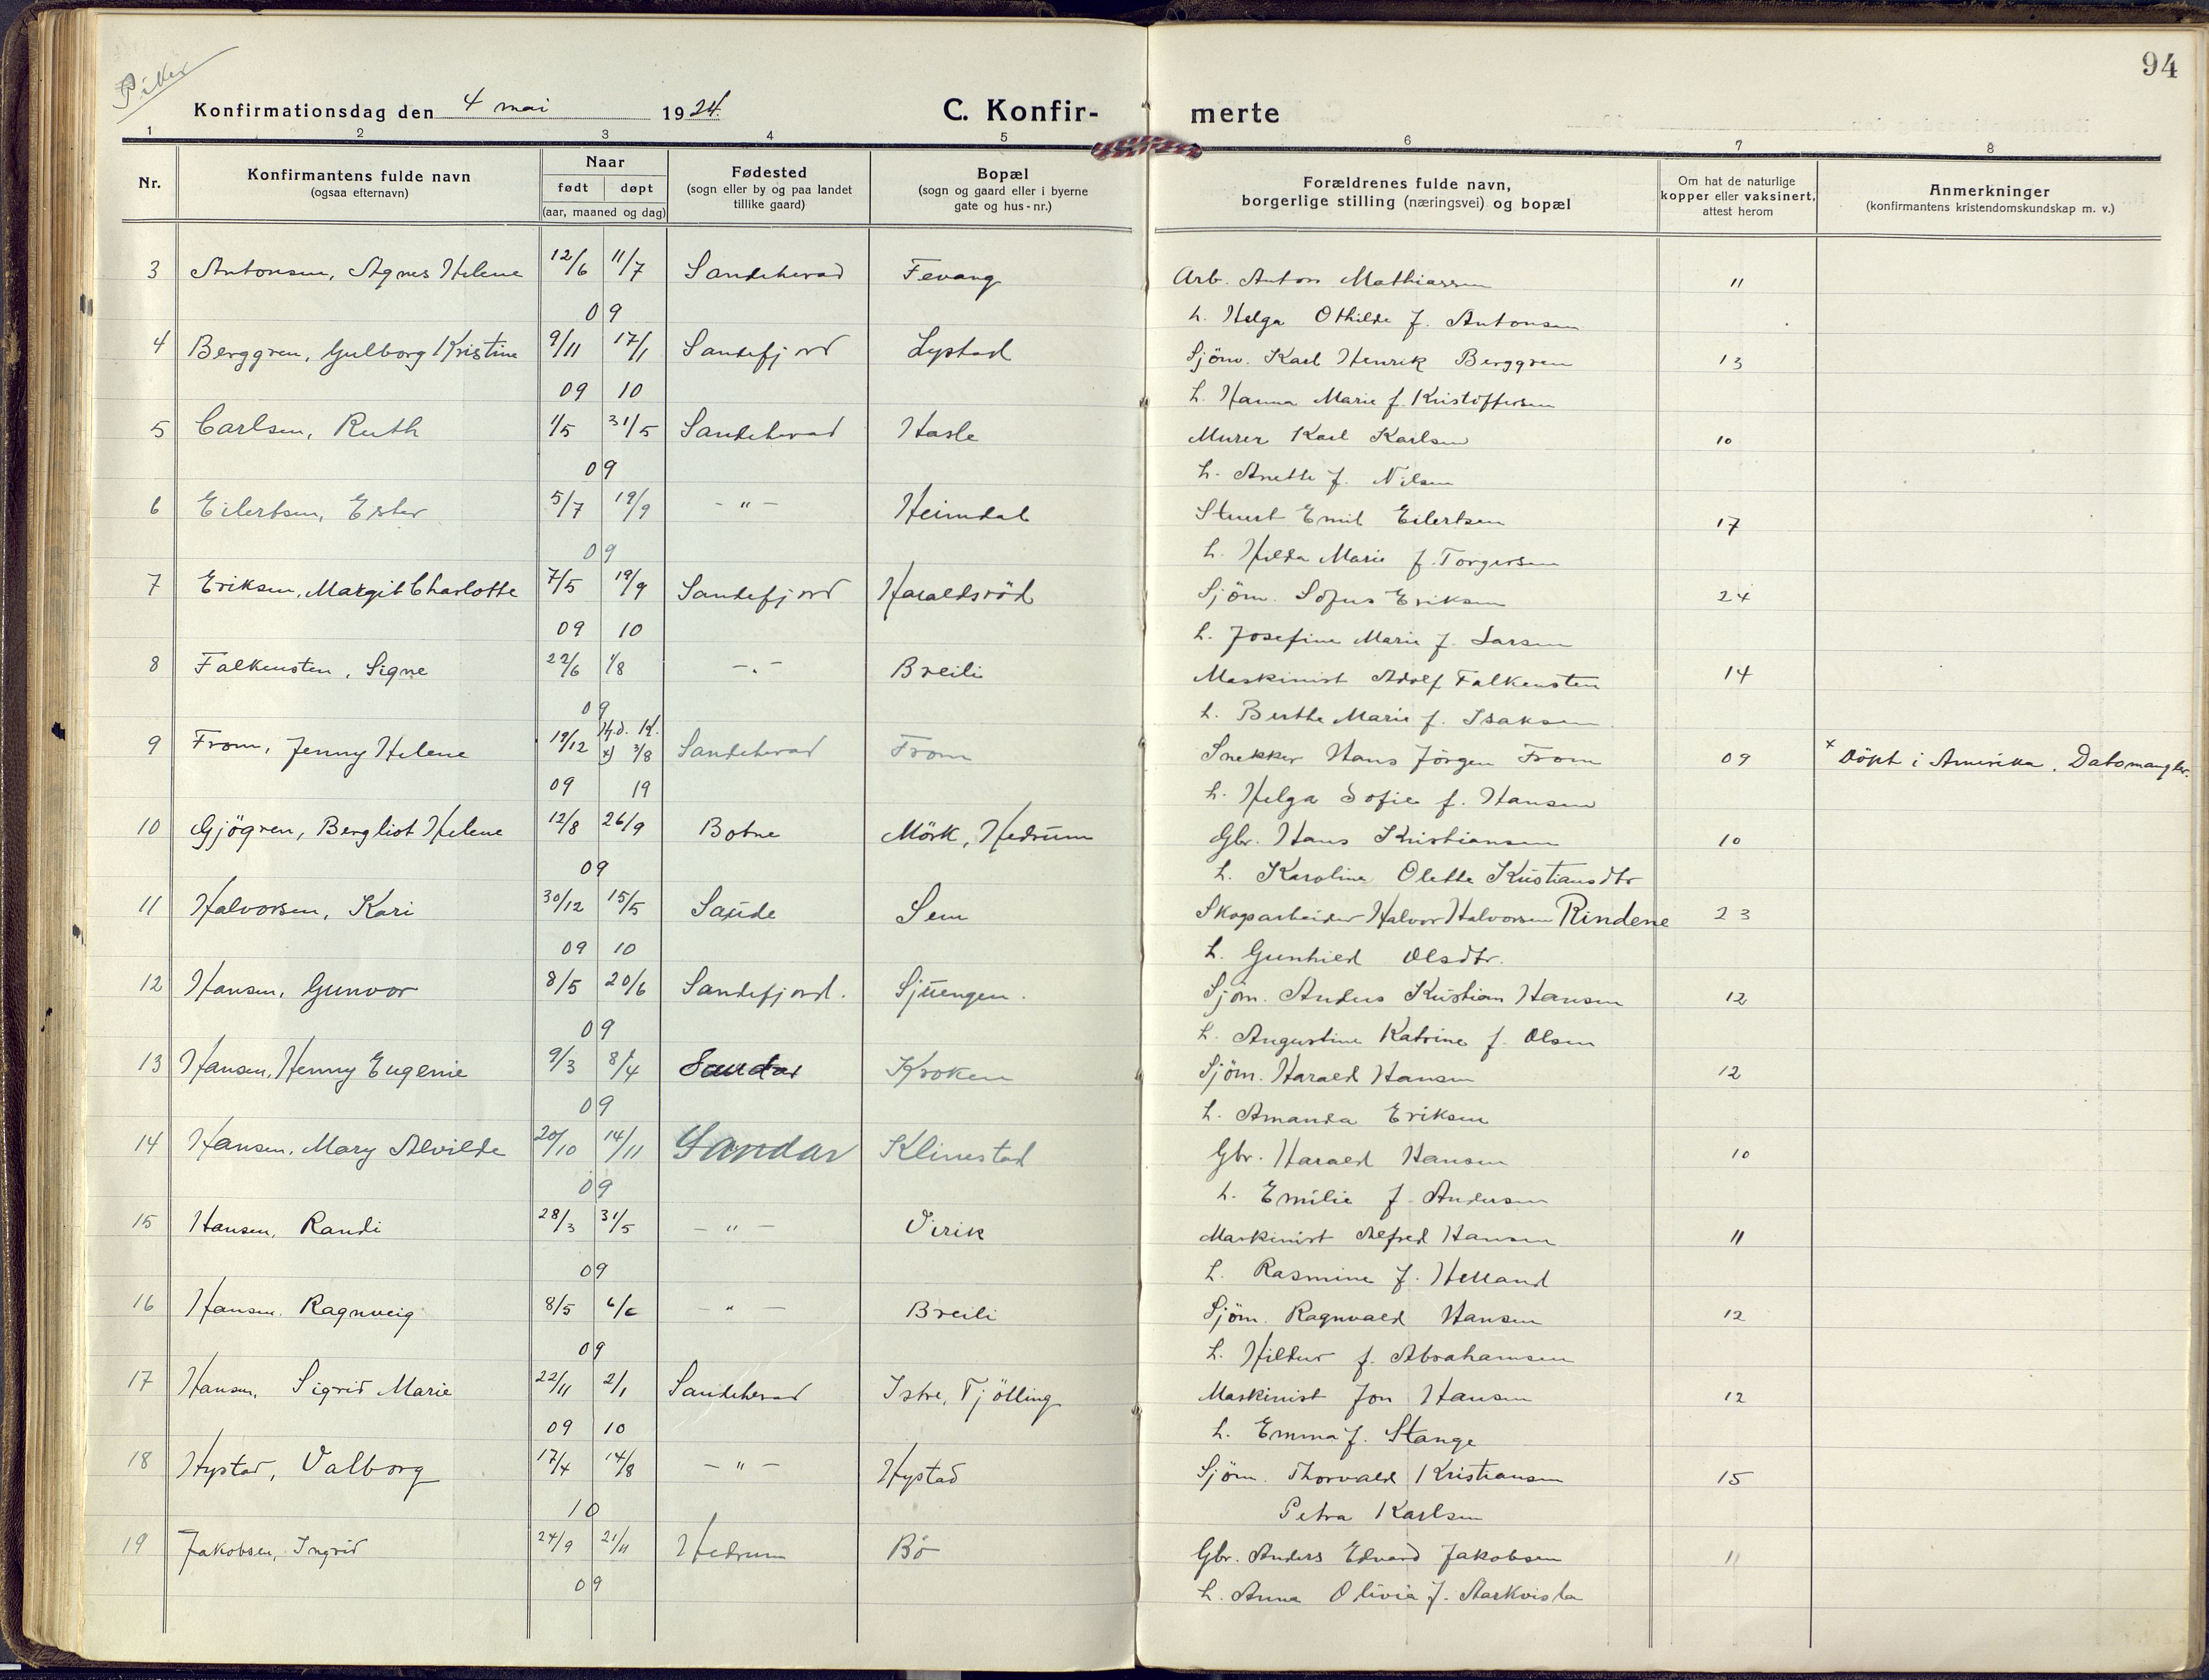 Piker
94
Konfirmationsdag den 4 mai 1924. C. Konfir- merte
1 2 3 4 5 6 7 8
Nr. Konfirmantens fulde navn Naar Fødested Bopæl Forældrenes fulde navn, Om hat de naturlige Anmerkninger
(ogsaa efternavn) født døpt (sogn eller by og paa landet (sogn og gaard eller i byerne borgerlige stilling (næringsvei) og bopæl kopper eller vaksinert, (konfirmantens kristendomskundskap m. v.)
(aar, maaned og dag) tillike gaard) gate og hus-nr.) attest herom
3 Antonsen, Agnes Helene 12/6 11/7 Sandeherad Fevang Arb. Anton Mathiassen 11
09 h. Helga Othilde f. Antonsen
4 Berggren, Gulborg Kristine 9/11 17/1 Sandefjord Lystad Sjöm. Karl Henrik Berggren 13
09 10 h. Hanna Marie f. Kristoffersen
5 Carlsen, Ruth 1/5 31/5 Sandeherad Hasle Murer Karl Karlsen 10
09 h. Anette f. Nilsen
6 Eilertsen, Ester 5/7 19/9 - " - Heimdal Stuert Emil Eilertsen 17
09 h. Hilda Marie f. Torgersen
7 Eriksen, Margit Charlotte 7/5 19/9 Sandefjord Haraldsröd Sjöm. Sofus Eriksen 24
09 10 h. Josefine Marie f. Larsen
8 Falkensten, Signe 22/6 1/8 - " - Breili Maskinist Adolf Falkensten 14
09 h. Berthe Marie f. Isaksen
9 From, Jenny Helene 19/12 Hj.d. K. x) 3/8 Sandeherad From Snekker Hans Jörgen From 09 x Döpt i Amerika. Dato mangler.
09 19 h. Helga Sofie f. Hansen
10 Gjögren, Bergliot Helene 12/8 26/9 Botne Mörk, Hedrum Gbr. Hans Kristiansen 10
09 h. Karoline Olette Kristiansdtr
11 Halvorsen, Kari 30/12 15/5 Saude Sem Skogsarbeider Halvor Halvorsen Rindene 23
09 10 h. Gunhild Olsdtr.
12 Hansen, Gunvor 8/5 20/6 Sandefjord. Sjuengen. Sjöm. Anders Kristian Hansen 12
09 h. Augustine Katrine f. Olsen
13 Hansen, Henny Eugenie 9/3 8/4 Sandar Kroken Sjöm. Harald Hansen 12
09 h. Amanda Eriksen
14 Hansen, Mary Alvilde 20/10 14/11 Sandar Klinestad Gbr. Harald Hansen 10
09 h. Emilie f. Andersen
15 Hansen, Randi 28/3 31/5 - " - Virik Maskinist Alfred Hansen 11
09 h. Rasmine f. Helland
16 Hansen, Ragnveig 8/5 6/6 - " - Breili Sjöm. Ragnvald Hansen 12
09 h. Hildur f. Abrahamsen
17 Hansen, Sigrid Marie 22/11 2/1 Sandeherad Istre, Tjölling Maskinist Jon Hansen 12
09 10 h. Emma f. Stange
18 Hystad, Valborg 17/4 14/8 - " - Hystad Sjöm. Thorvald Kristiansen 15
10 Petra Karlsen
19 Jakobsen, Ingrid 24/9 21/11 Hedrum Bö Gbr. Anders Edvard Jakobsen 11
09 h. Anna Olivia f.